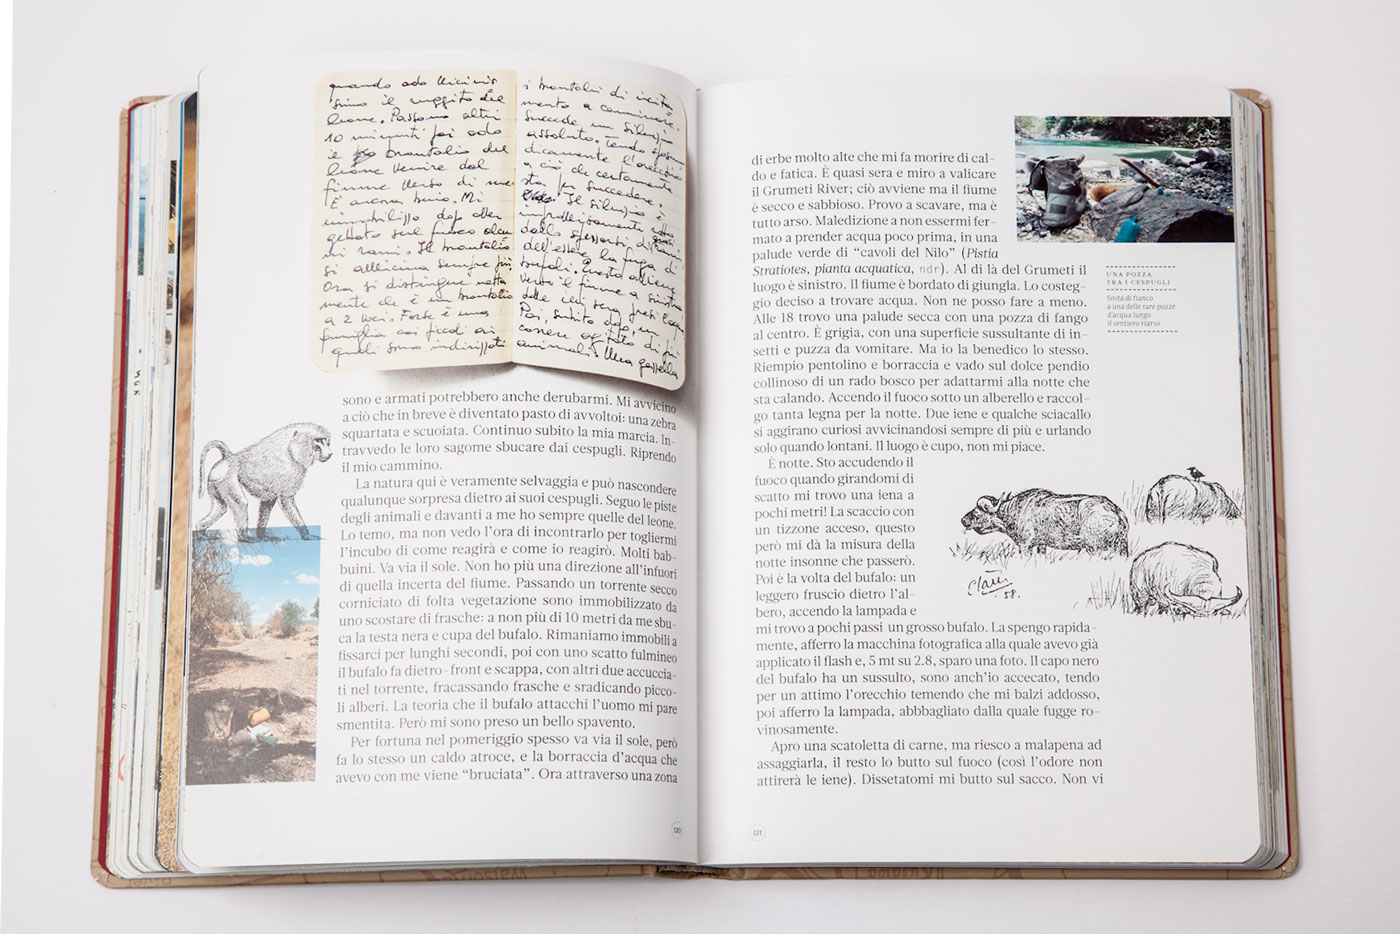 quando odo vicinis
simo il ruggito del
leone. Passano altri
10 minuti poi odo
il brontolio del
leone venire dal
fiume verso di me
È ancora buio. Mi
immobilizzo dopo aver
gettato sul fuoco alcu
ni rami. Il brontolio
si avvicina sempre più
Ora si distingue netta
mente che è un brontolio
a 2 voci. Forse è una
famiglia coi piccoli ai
quali sono indirizzati
i brontolii di incita
mento a camminare.
Succede un silenzio
assoluto. Tendo spasmo
dicamente l'orecchio
a ciò che certamente
sta per succedere.
Il silenzio è
improvvisamente rotto
dallo spezzarsi di rami
dell'
bufali. Questo
verso il fiume a sinistra
Poi, subito dopo, un
correre agitato di più
animali. Una gazzella
sono e armati potrebbero anche derubarmi. Mi avvicino
a ciò che in breve è diventato pasto di avvoltoi: una zebra
squartata e scuoiata. Continuo subito la mia marcia. In-
travvedo le loro sagome sbucare dai cespugli. Riprendo
il mio cammino.
La natura qui è veramente selvaggia e può nascondere
qualunque sorpresa dietro ai suoi cespugli. Seguo le piste
degli animali e davanti a me ho sempre quelle del leone.
Lo temo, ma non vedo l'ora di incontrarlo per togliermi
l'incubo di come reagirà e come io reagirò. Molti bab-
buini. Va via il sole. Non ho più una direzione all'infuori
di quella incerta del fiume. Passando un torrente secco
corniciato di folta vegetazione sono immobilizzato da
uno scostare di frasche: a non più di 10 metri da me sbu-
ca la testa nera e cupa del bufalo. Rimaniamo immobili a
fissarci per lunghi secondi, poi con uno scatto fulmineo
il bufalo fa dietro-front e scappa, con altri due accuccia-
ti nel torrente, fracassando frasche e sradicando picco-
li alberi. La teoria che il bufalo attacchi l'uomo mi pare
smentita. Però mi sono preso un bello spavento.
Per fortuna nel pomeriggio spesso va via il sole, però
fa lo stesso un caldo atroce, e la borraccia d'acqua che
avevo con me viene "bruciata". Ora attraverso una zona
120
di erbe molto alte che mi fa morire di cal-
do e fatica. È quasi sera e miro a valicare
il Grumeti River; ciò avviene ma il fiume
è secco e sabbioso. Provo a scavare, ma è
tutto arso. Maledizione a non essermi fer-
mato a prender acqua poco prima, in una
palude verde di "cavoli del Nilo" (Pistia
Stratiotes, pianta acquatica, ndr). Al di là del Grumeti il
luogo è sinistro. Il fiume è bordato di giungla. Lo costeg-
gio deciso a trovare acqua. Non ne posso fare a meno.
Alle 18 trovo una palude secca con una pozza di fango
al centro. È grigia, con una superficie sussultante di in-
setti e puzza da vomitare. Ma io la benedico lo stesso.
Riempio pentolino e borraccia e vado sul dolce pendio
collinoso di un rado bosco per adattarmi alla notte che
sta calando. Accendo il fuoco sotto un alberello e raccol-
go tanta legna per la notte. Due iene e qualche sciacallo
si aggirano curiosi avvicinandosi sempre di più e urlando
solo quando lontani. Il luogo è cupo, non mi piace.
È notte. Sto accudendo il
fuoco quando girandomi di
scatto mi trovo una iena a
pochi metri! La scaccio con
un tizzone acceso, questo
però mi dà la misura della
notte insonne che passerò.
Poi è la volta del bufalo: un
leggero fruscio dietro l'al-
bero, accendo la lampada e
mi trovo a pochi passi un grosso bufalo. La spengo rapida-
mente, afferro la macchina fotografica alla quale avevo già
applicato il flash e, 5 mt su 2.8, sparo una foto. Il capo nero
del bufalo ha un sussulto, sono anch'io accecato, tendo
per un attimo l'orecchio temendo che mi balzi addosso,
poi afferro la lampada, abbbagliato dalla quale fugge ro-
vinosamente.
Apro una scatoletta di carne, ma riesco a malapena ad
assaggiarla, il resto lo butto sul fuoco (così l'odore non
attirerà le iene). Dissetatomi mi butto sul sacco. Non vi
UNA POZZA
TRA I CESPUGLI
Sosta di fianco
a una delle rare pozze
d'acqua lungo
il sentiero riarso.
58.
121